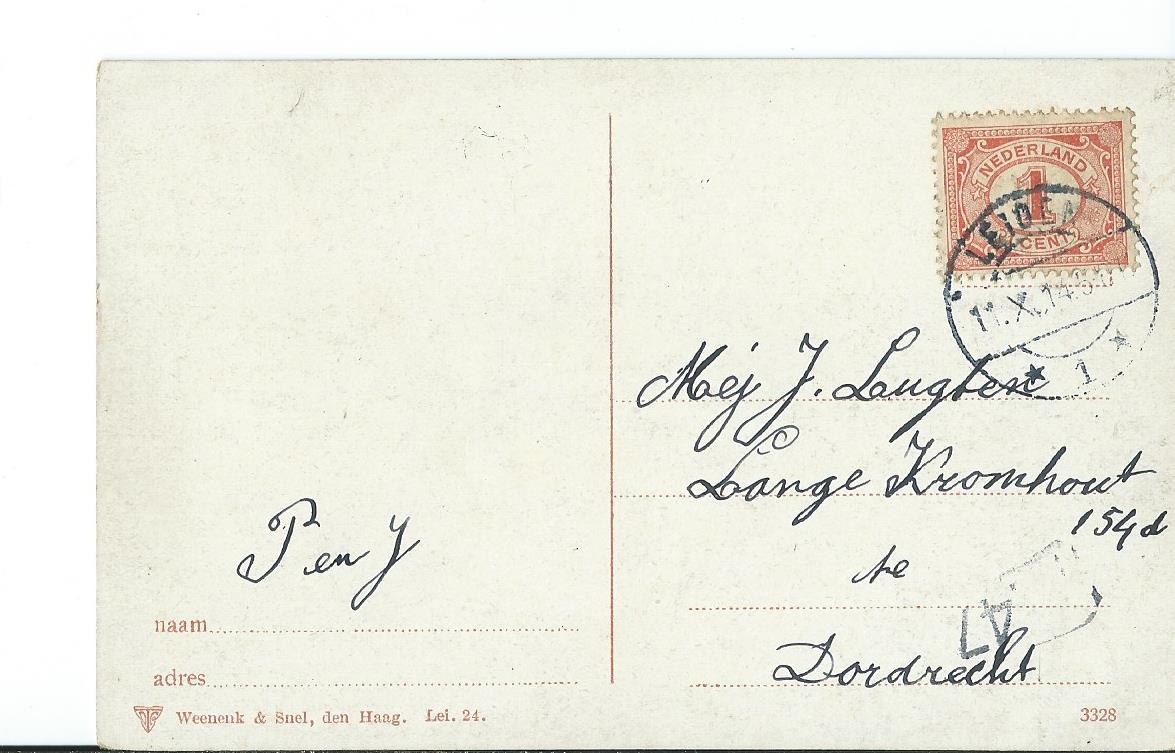 NEDERLAND
1
CENT
LEIDEN
11.X.14
1
Mej J. Lugten
Lange Kromhout
154d
te
Dordrecht
P en J
naam
adres
Weenenk & Snel, den Haag. Lei. 24.
3328